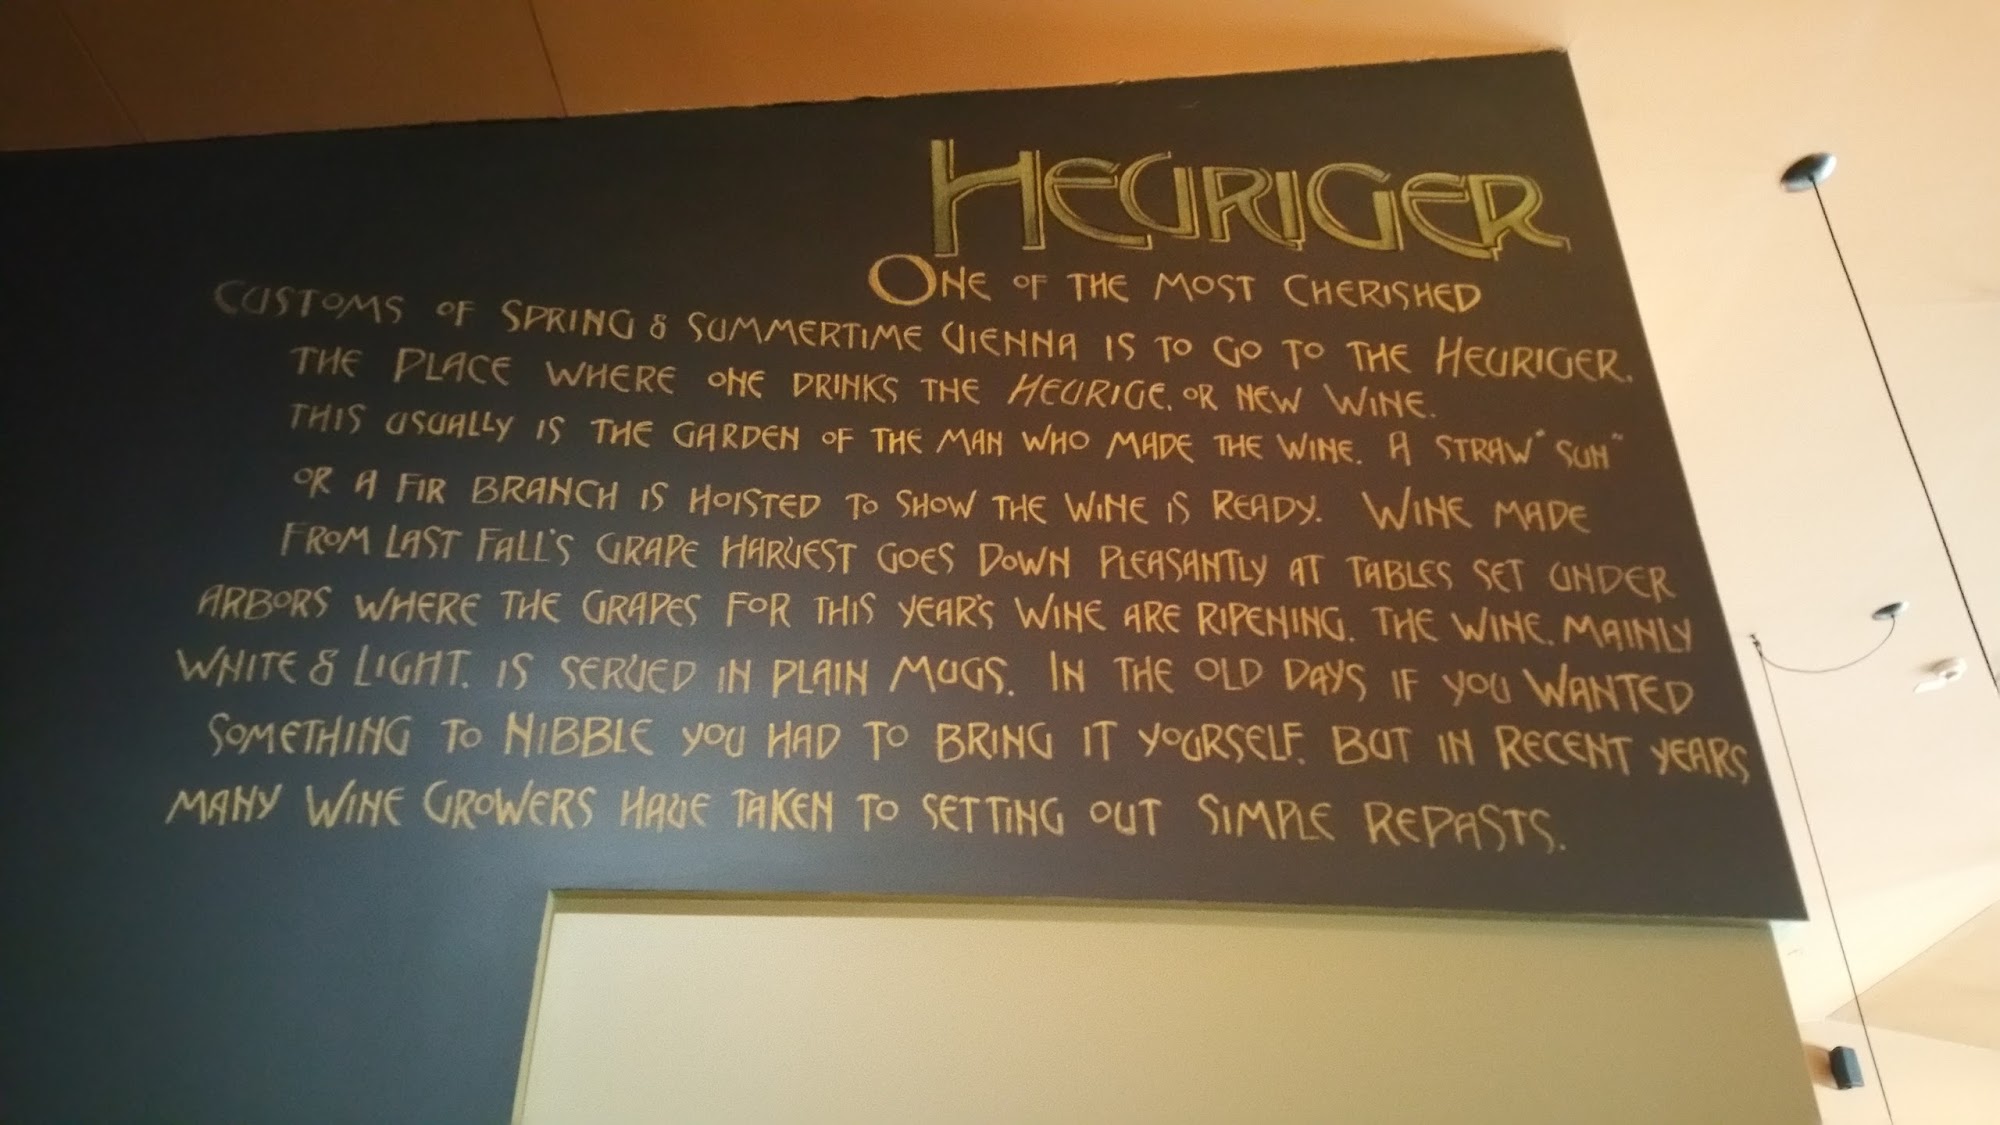 HEURIGER
ONE OF THE MOST CHERISHED
CUSTOMS OF SPRING & SUMMERTIME VIENNA IS TO GO TO THE HEURIGER,
THE PLACE WHERE ONE DRINKS THE HEURIGE, OR NEW WINE.
THIS USUALLY IS THE GARDEN OF THE MAN WHO MADE THE WINE. A STRAW "SUN"
OR A FIR BRANCH IS HOISTED TO SHOW THE WINE IS READY. WINE MADE
FROM LAST FALL'S GRAPE HARVEST GOES DOWN PLEASANTLY AT TABLES SET UNDER
ARBORS WHERE THE GRAPES FOR THIS YEAR'S WINE ARE RIPENING. THE WINE, MAINLY
WHITE & LIGHT, IS SERVED IN PLAIN MUGS. IN THE OLD DAYS IF YOU WANTED
SOMETHING TO NIBBLE YOU HAD TO BRING IT YOURSELF, BUT IN RECENT YEARS
MANY WINE GROWERS HAVE TAKEN TO SETTING OUT SIMPLE REPASTS.